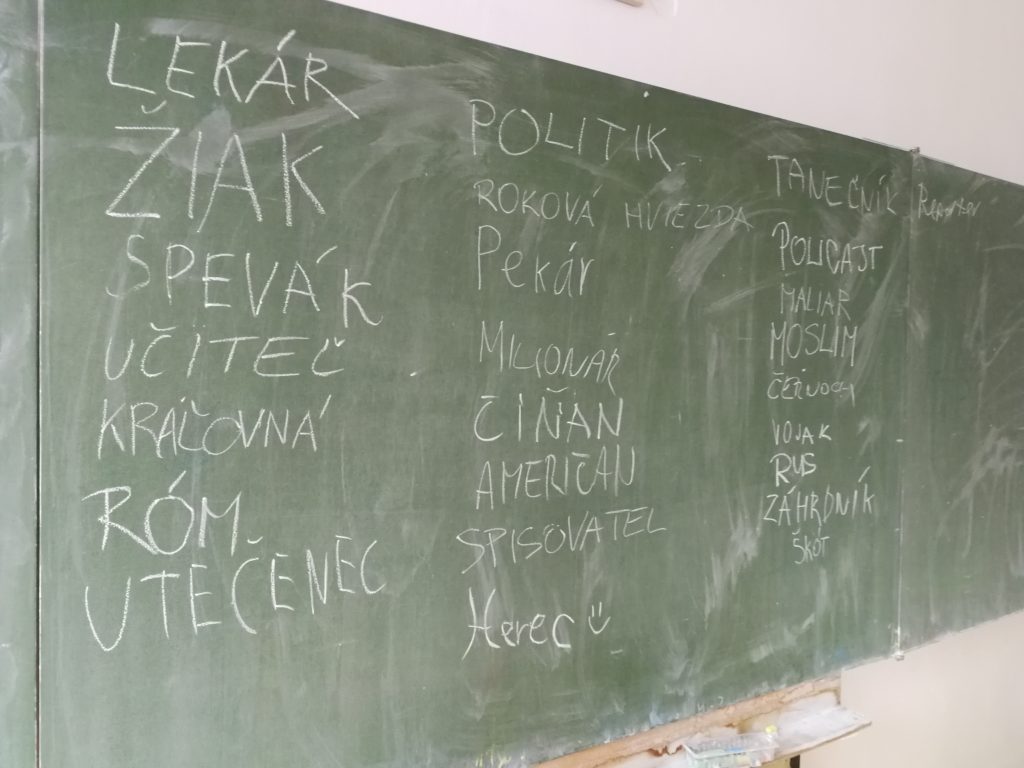 LEKÁR
ŽIAK
SPEVÁK
UČITEĽ
KRÁĽOVNÁ
RÓM
UTEČENEC
POLITIK
ROKOVÁ HVIEZDA
Pekár
MILIONÁR
ČIŇAN
AMERIČAN
SPISOVATEL
Herec
TANEČNÍK
POLICAJT
MALIAR
MOSLIM
ČERNOCH
VOJAK
RUS
ZÁHRDNÍK
ŠKÓT